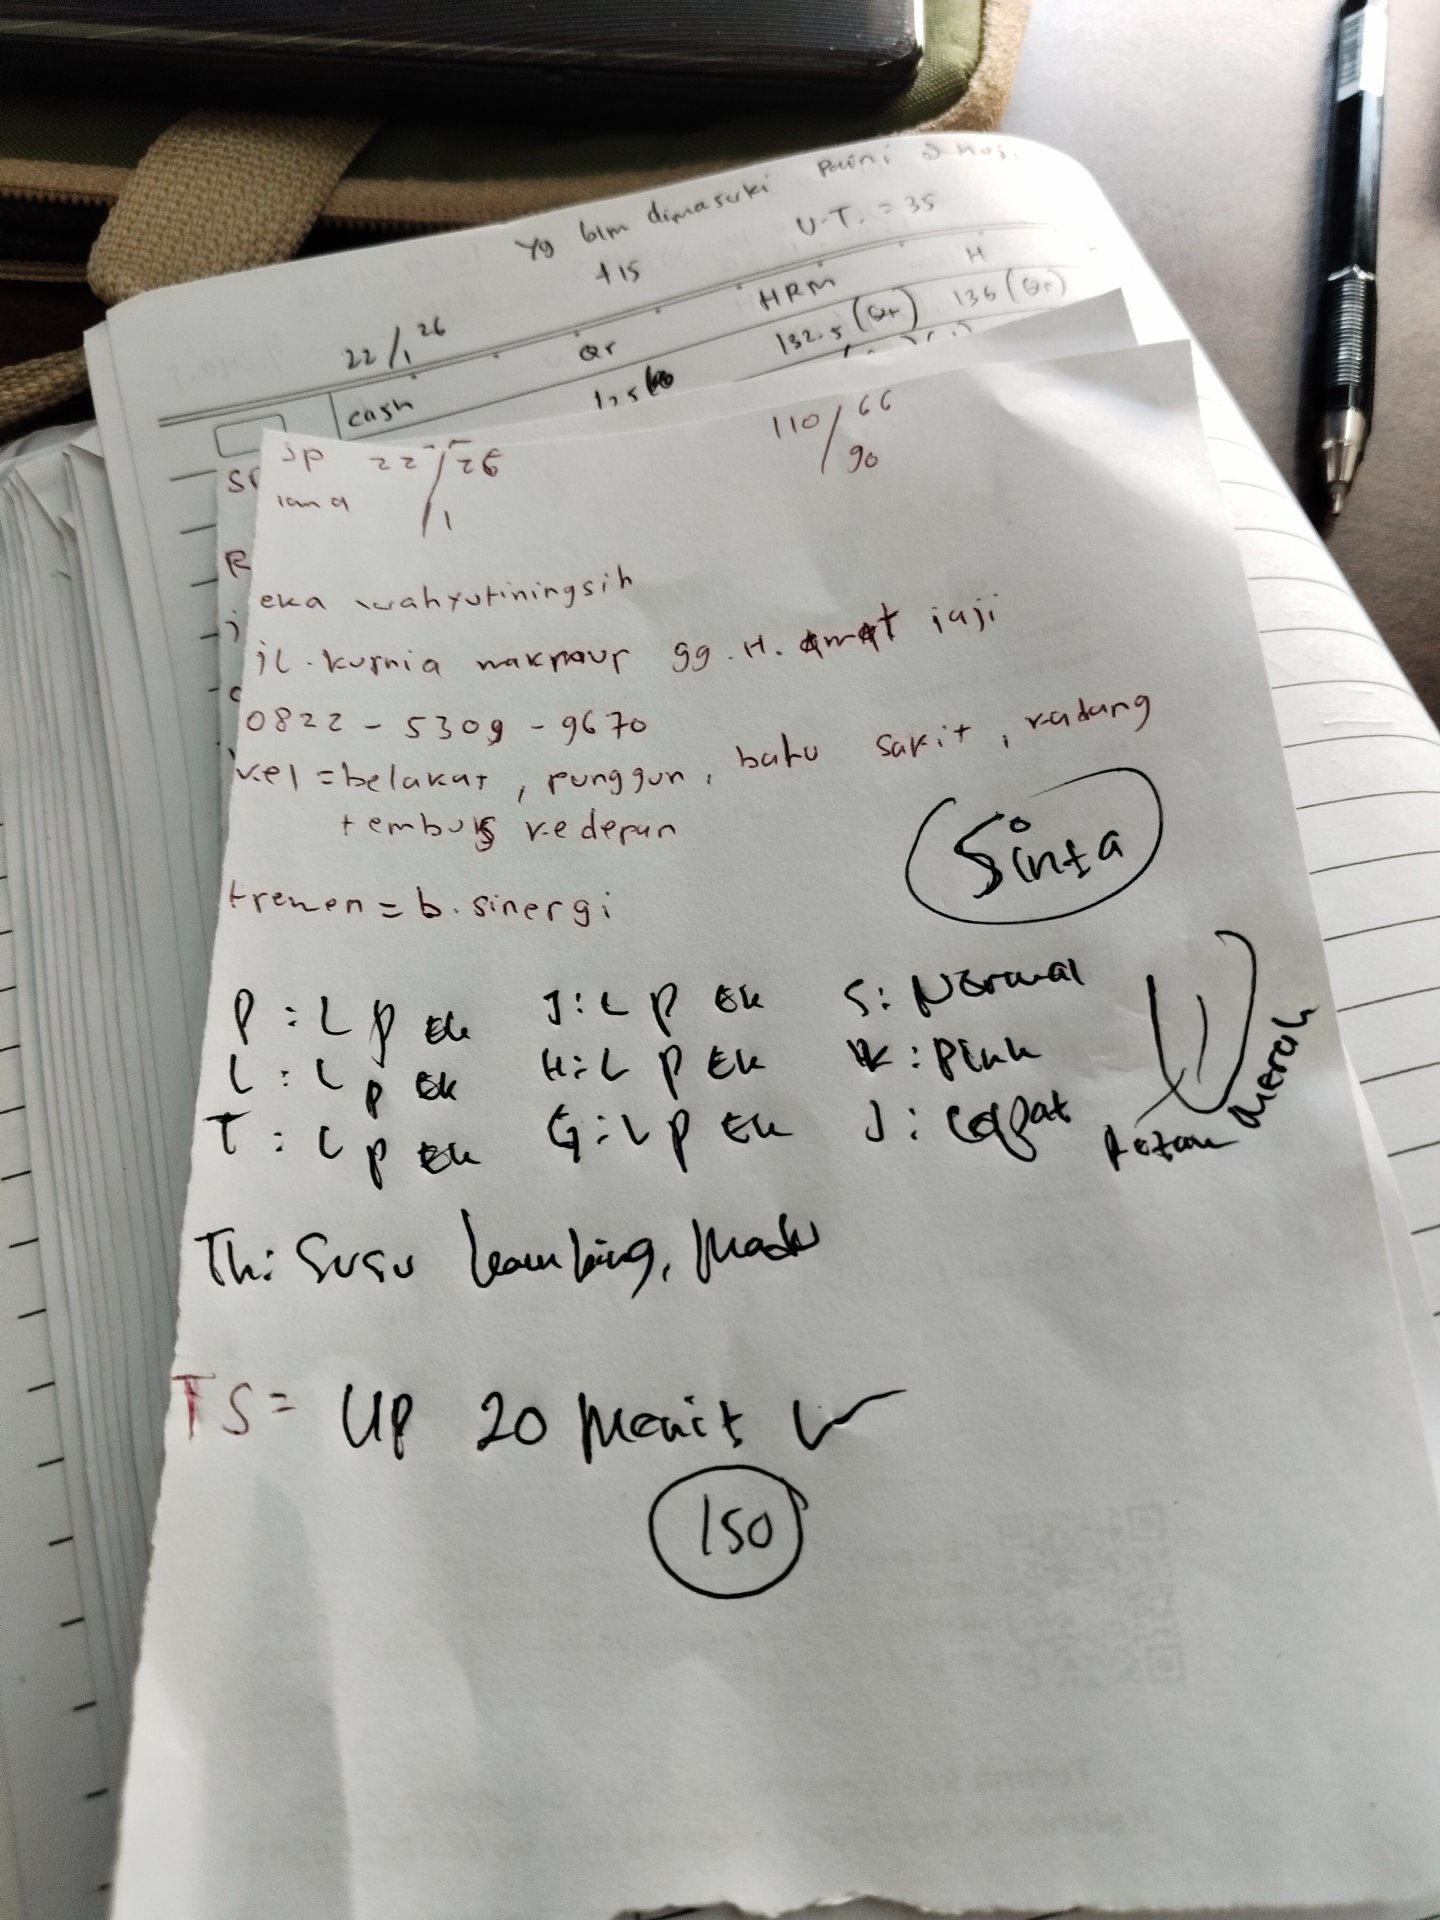 Yg blm dimasuki
+15
U-T. = 35
22/1 26
HRM
H
cash
Qr
132.5 (Qr)
136 (Qr)
SP 22/1 26
lama
110/66
90
eka wahyutiningsih
jl. kurnia makmur gg. H. amat jaji
0822 - 5309 - 9670
kel = belakat, punggun, bahu sakit, kadang
tembus kedepan
Sinta
tremen = b. sinergi
P : L P Ek
J : L P Ek
S : Normal
L : L P Ek
H : L P Ek
K : Pink
T : L P Ek
G : L P Ek
J : Cepat
Merah
Th : Susu kambing, Madu
TS = UP 20 Menit ✓
150